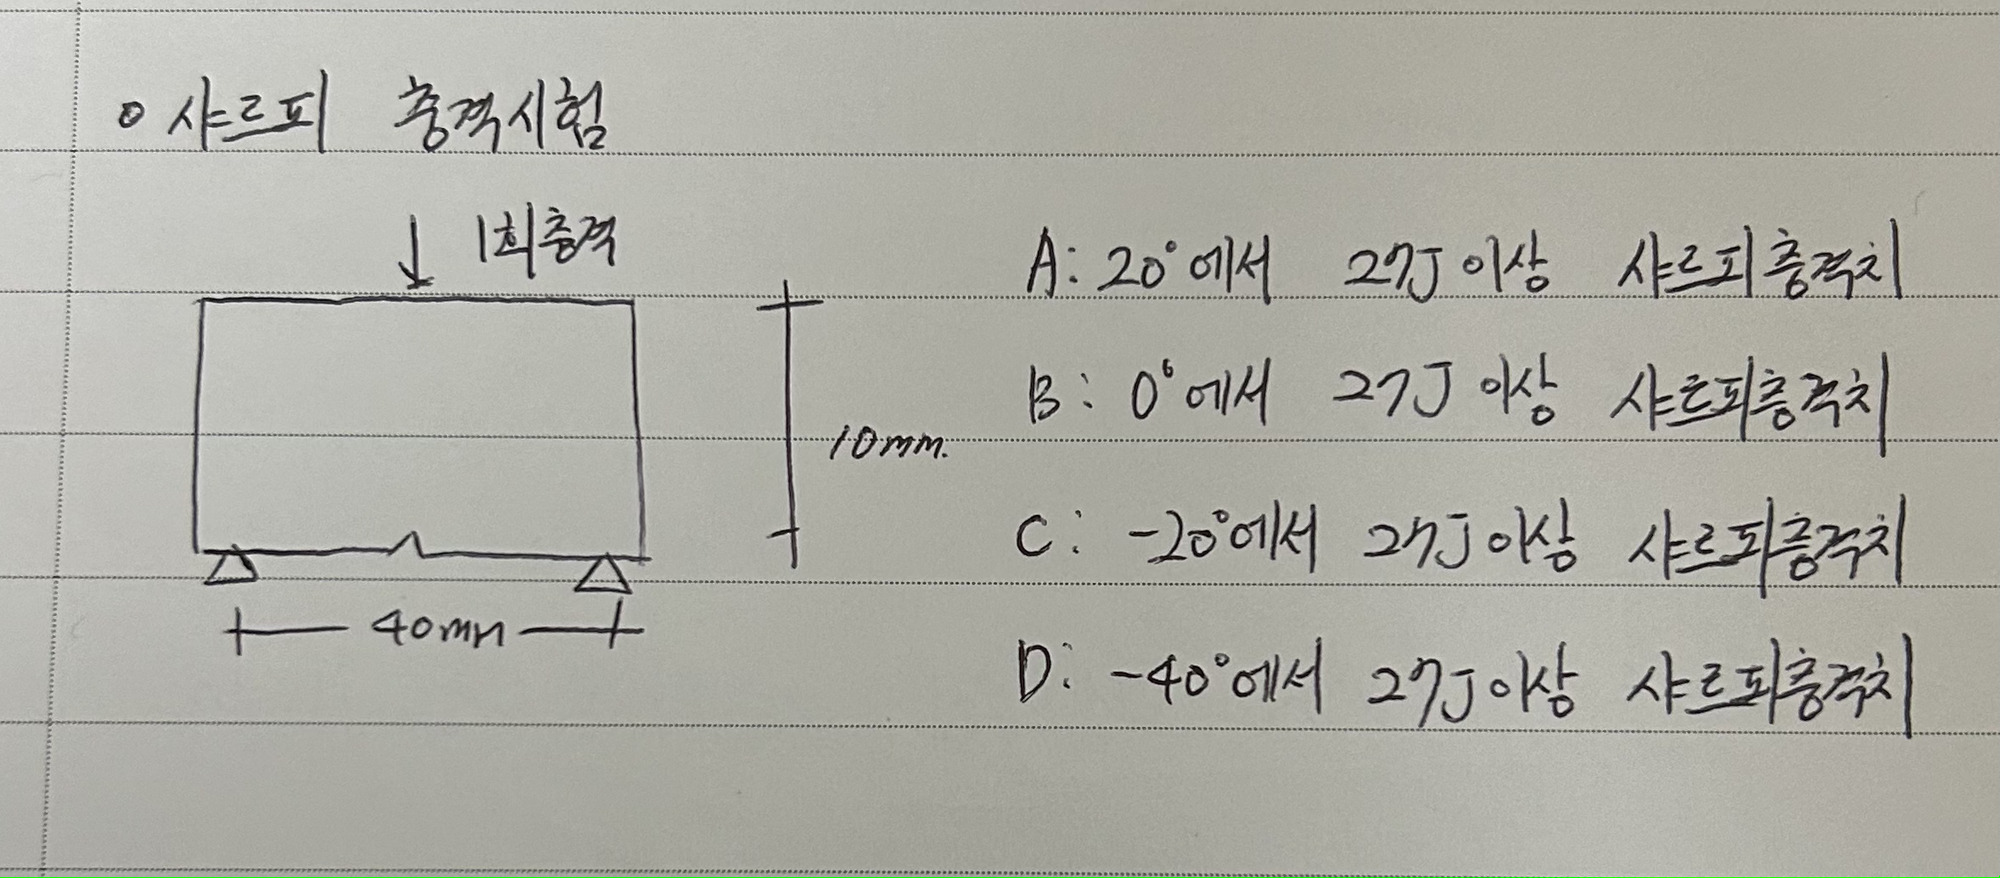 o 샤르피 충격시험
↓ 1회충격
10mm.
40mm
A: 20°에서 27J 이상 샤르피충격치
B: 0°에서 27J 이상 샤르피충격치
C: -20°에서 27J 이상 샤르피충격치
D: -40°에서 27J 이상 샤르피충격치